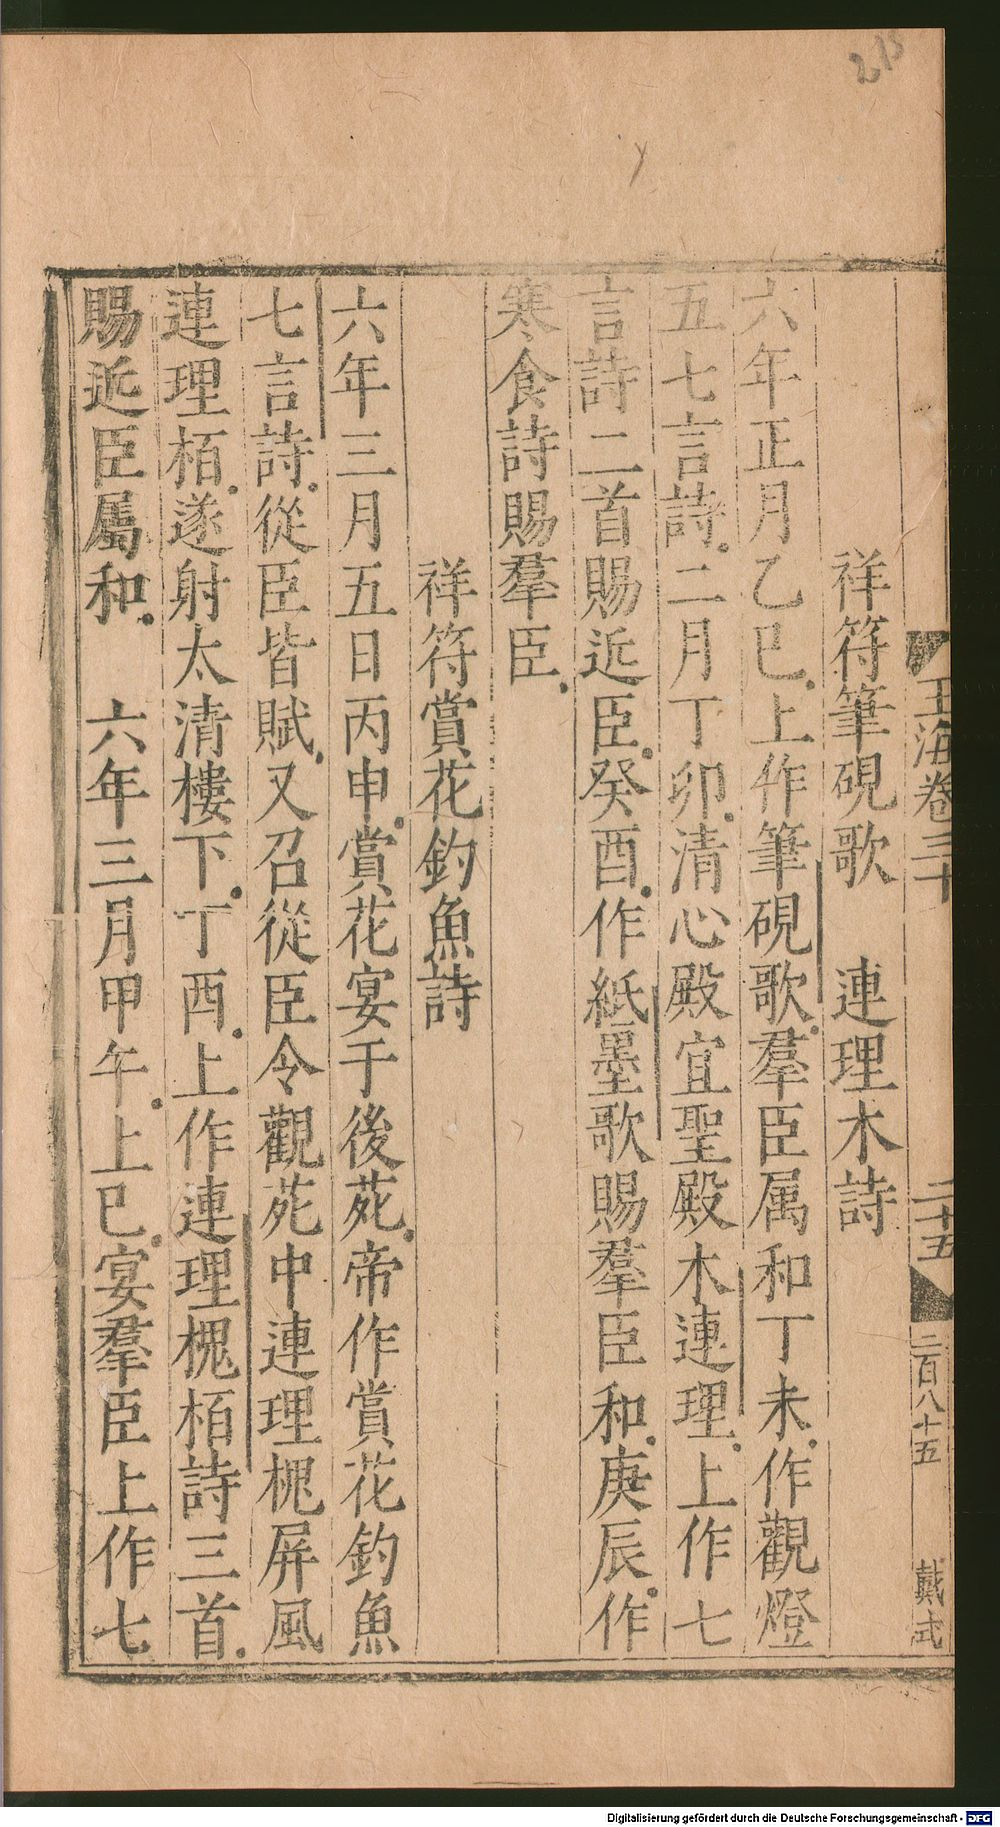 玉海卷三十
二十五
二百八十五
戴式
祥符筆硯歌　連理木詩
六年正月乙巳上作筆硯歌羣臣属和丁未作觀燈
五七言詩二月丁卯清心殿宜聖殿木連理上作七
言詩二首賜近臣癸酉作紙墨歌賜羣臣和庚辰作
寒食詩賜羣臣
祥符賞花釣魚詩
六年三月五日丙申賞花宴于後苑帝作賞花釣魚
七言詩從臣皆賦又召從臣令觀苑中連理槐屏風
連理栢遂射太清樓下丁酉上作連理槐栢詩三首
賜近臣屬和　六年三月甲午上巳宴羣臣上作七
Digitalisierung gefördert durch die Deutsche Forschungsgemeinschaft - DFG